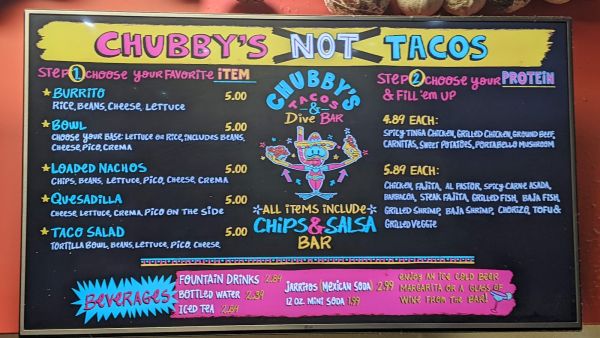 CHUBBY'S NOT TACOS
STEP 1 CHOOSE YOUR FAVORITE ITEM
★BURRITO 5.00
RICE, BEANS, CHEESE, LETTUCE
★BOWL 5.00
CHOOSE YOUR BASE: LETTUCE OR RICE, INCLUDES BEANS,
CHEESE, PICO, CREMA
★LOADED NACHOS 5.00
CHIPS, BEANS, LETTUCE, PICO, CHEESE, CREMA
★QUESADILLA 5.00
CHEESE, LETTUCE, CREMA, PICO ON THE SIDE
★TACO SALAD 5.00
TORTILLA BOWL, BEANS, LETTUCE, PICO, CHEESE
CHUBBY'S
TACOS
&
DIVE BAR
★ALL ITEMS INCLUDE★
CHIPS & SALSA
BAR
STEP 2 CHOOSE YOUR PROTEIN
& FILL 'EM UP
4.89 EACH:
SPICY TINGA CHICKEN, GRILLED CHICKEN, GROUND BEEF,
CARNITAS, SWEET POTATOES, PORTABELLO MUSHROOM
5.89 EACH:
CHICKEN FAJITA, AL PASTOR, SPICY CARNE ASADA,
BARBACOA, STEAK FAJITA, GRILLED FISH, BAJA FISH,
GRILLED SHRIMP, BAJA SHRIMP, CHORIZO, TOFU &
GRILLED VEGGIE
BEVERAGES
FOUNTAIN DRINKS 2.89
BOTTLED WATER 2.39
ICED TEA 2.89
JARRITOS (MEXICAN SODA) 2.99
12 OZ. MINI SODA 1.99
ENJOY AN ICE COLD BEER
MARGARITA OR A GLASS OF
WINE FROM THE BAR!